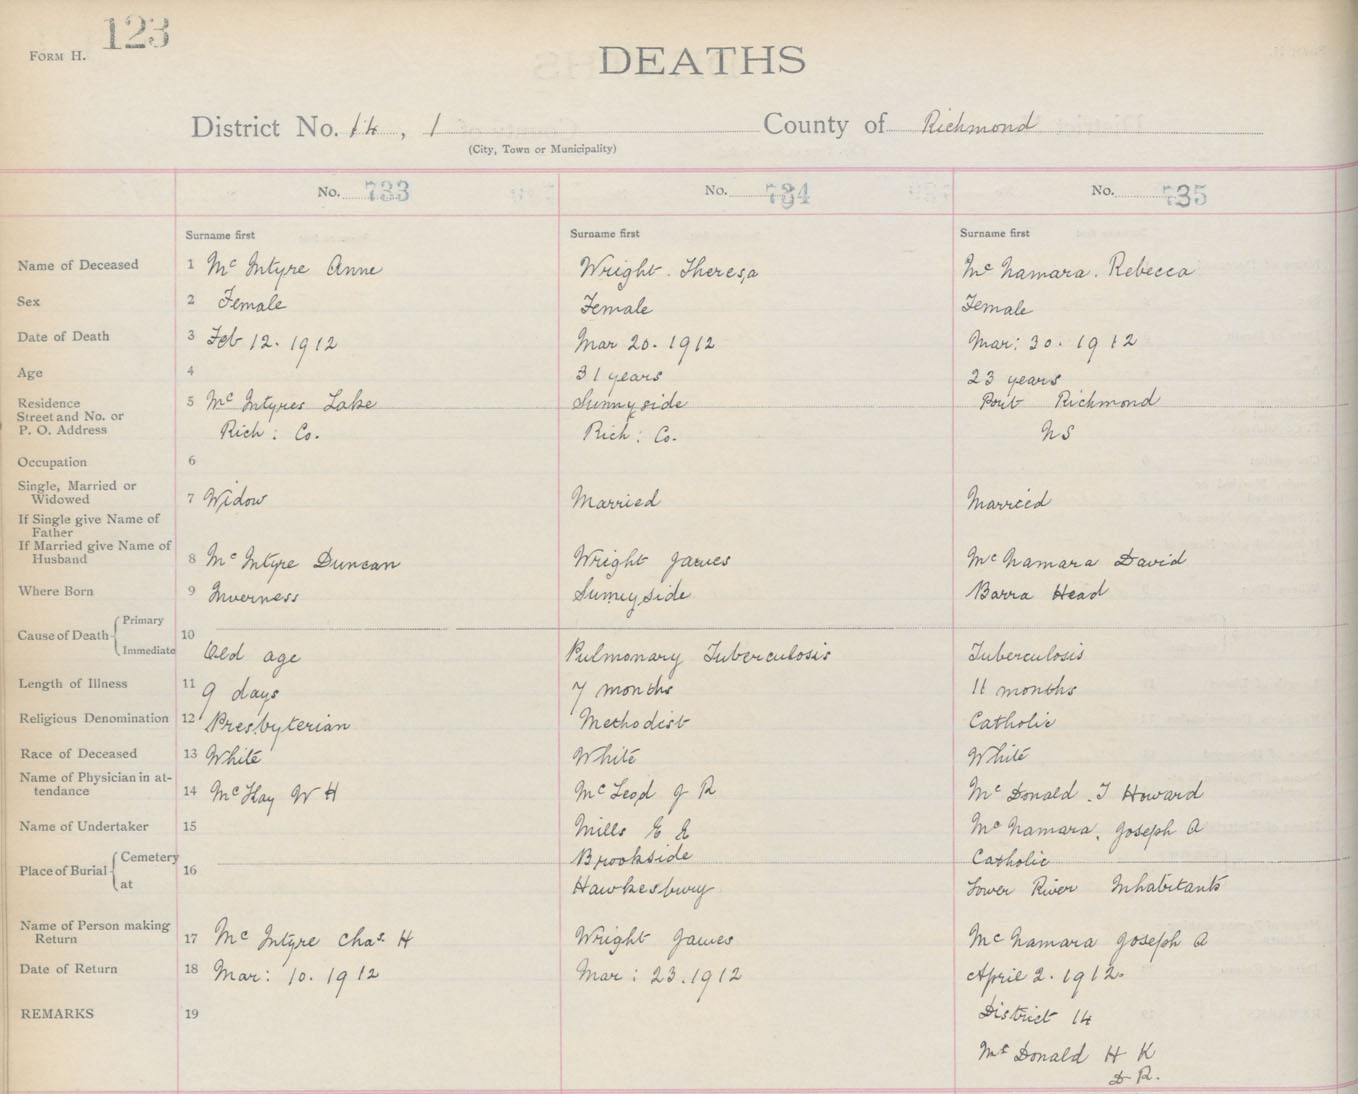 FORM H. 123
DEATHS
District No. 14 , 1 County of Richmond
(City, Town or Municipality)
No. 733 No. 734 No. 735
Surname first Surname first Surname first
Name of Deceased 1 Mc Intyre Anne Wright. Theresa Mc Namara. Rebecca
Sex 2 Female Female Female
Date of Death 3 Feb 12. 1912 Mar 20. 1912 Mar: 30. 1912
Age 4 31 years 23 years
Residence 5 Mc Intyres Lake Sunnyside Port Richmond
Street and No. or
P. O. Address Rich: Co. Rich: Co. NS
Occupation 6
Single, Married or
Widowed 7 Widow Married Married
If Single give Name of
Father
If Married give Name of
Husband 8 Mc Intyre Duncan Wright James Mc Namara David
Where Born 9 Inverness Sunnyside Barra Head
Cause of Death Primary 10
Immediate Old age Pulmonary Tuberculosis Tuberculosis
Length of Illness 11 9 days 7 months 11 months
Religious Denomination 12 Presbyterian Methodist Catholic
Race of Deceased 13 White White White
Name of Physician in at-
tendance 14 W H Mc Leod J R Mc Donald. J Howard
Name of Undertaker 15 Mills Mc Namara. Joseph A
Place of Burial Cemetery 16 Brookside Catholic
at Hawkesbury Lower River Inhabitants
Name of Person making
Return 17 Mc Intyre Chas. H Wright James Mc Namara Joseph A
Date of Return 18 Mar: 10. 1912 Mar: 23. 1912 April 2. 1912.
REMARKS 19 District 14
Mc Donald H K
D R.